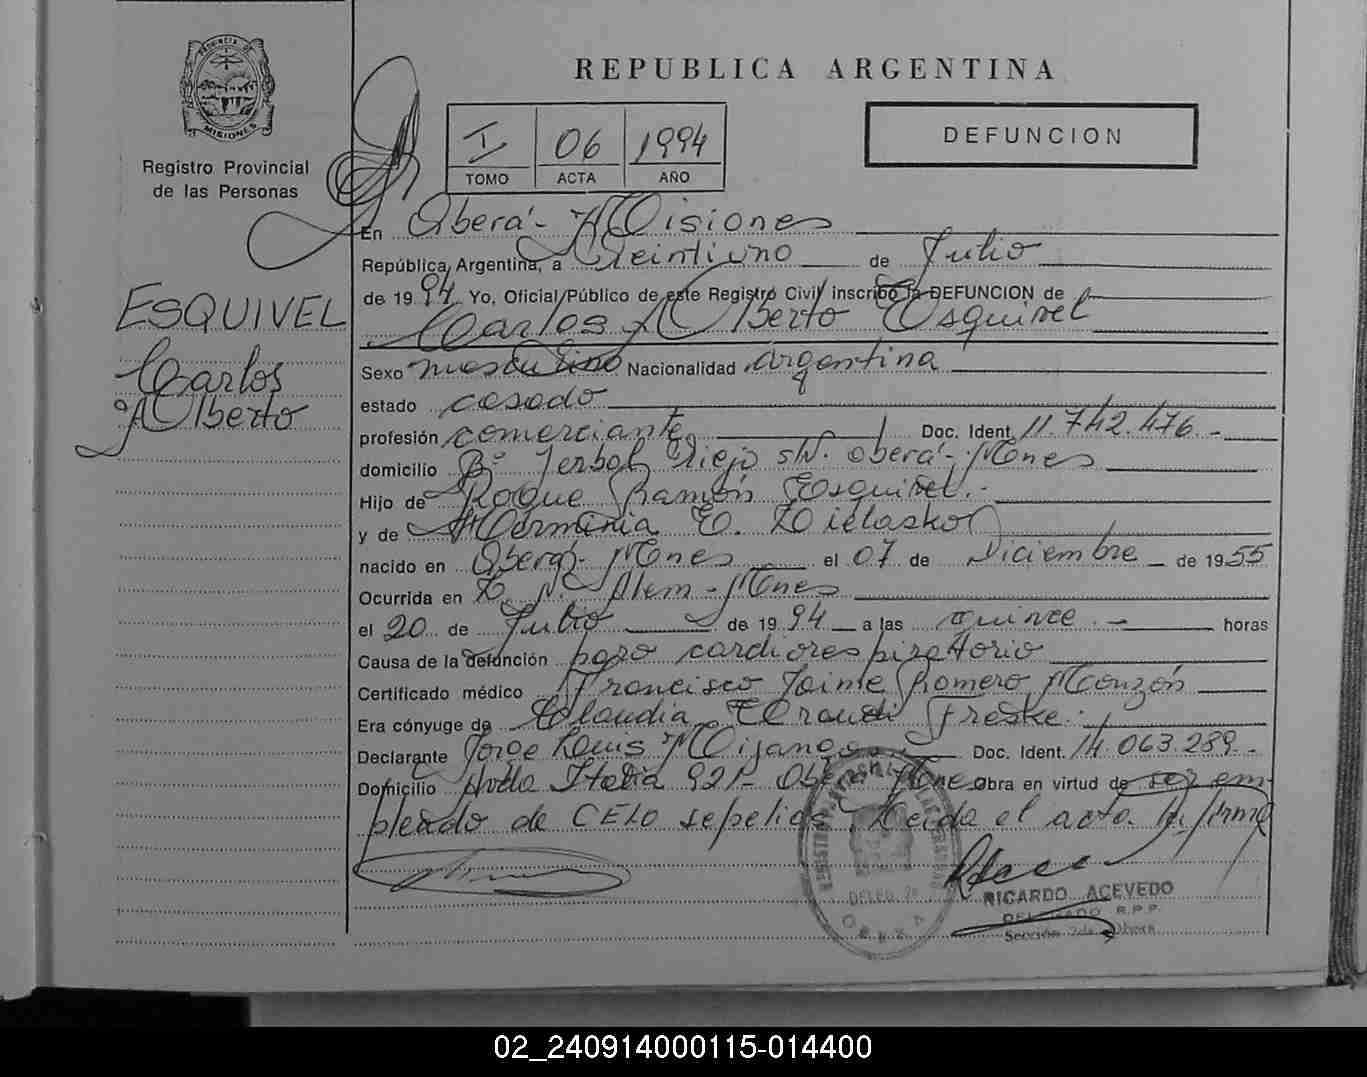 PROVINCIA DE
MISIONES
Registro Provincial
de las Personas
REPUBLICA ARGENTINA
I 06 1994
TOMO ACTA AÑO
DEFUNCION
ESQUIVEL
Carlos
Alberto
En Oberá - Misiones
República Argentina, a Veintiuno de Julio
de 1994 Yo, Oficial Público de este Registro Civil inscribo la DEFUNCION de
Carlos Alberto Esquivel
Sexo masculino Nacionalidad argentina
estado casado
profesión comerciante Doc. Ident. 11.742.476.-
domicilio Bº Yerbal Viejo s/N. Oberá - Mnes
Hijo de Roque Ramón Esquivel.-
y de Herminia E.
nacido en Oberá - Mnes el 07 de Diciembre de 1955
Ocurrida en L. N. Alem - Mnes
el 20 de Julio de 1994 a las quince.- horas
Causa de la defunción paro cardiorespiratorio
Certificado médico Francisco Jaime Romero Monzón
Era cónyuge de Claudia Freske.
Declarante Jorge Luis Doc. Ident. 14.063.289.-
Domicilio Avda Italia 921 - Oberá Mnes Obra en virtud de ser em-
pleado de CELO sepelios. Leída el acta. firma
DELEG. 2a
OBERA
RICARDO ACEVEDO
DELEGADO R.P.P.
Sección 2da Oberá
02_240914000115-014400